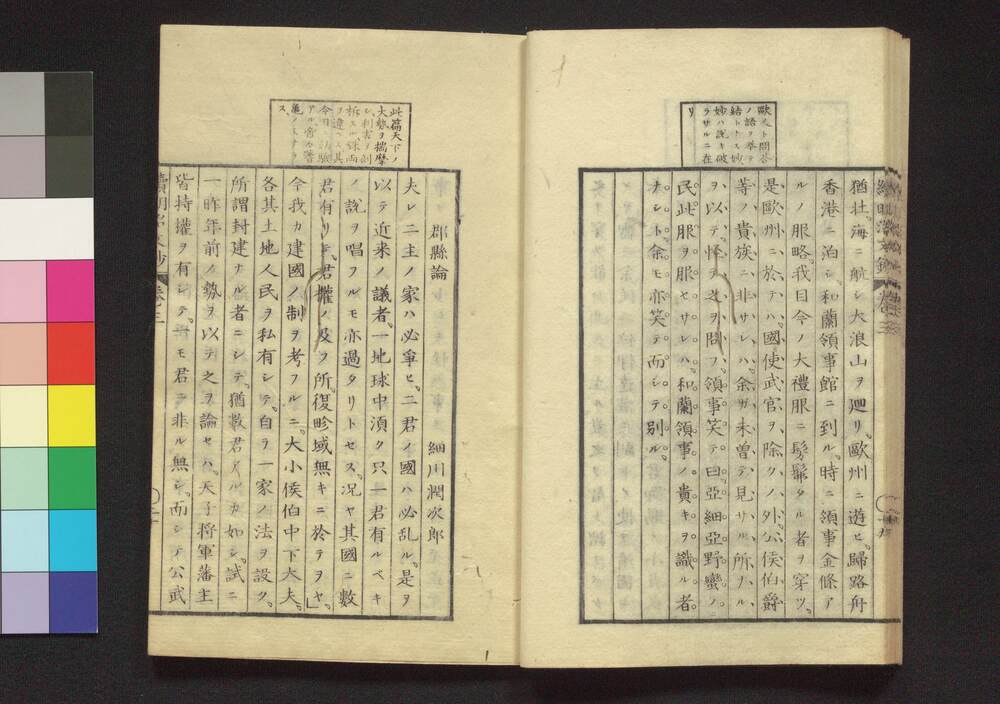 歐人ト問答
ノ語ヲ擧テ
結トス妙
妙ハ説キ破
ラサルニ在
リ
猶壮海ニ航シ大浪山ヲ廻リ歐州ニ遊ヒ歸路舟
香港ニ泊シ和蘭領事館ニ到ル時ニ領事金條ア
ルノ服略我目今ノ大禮服ニ髣髴タル者ヲ穿ツ
是歐州ニ於テハ國使武官ヲ除クノ外公侯伯爵
等ノ貴族ニ非サレハ余ガ未曽テ見サル所ナル
ヲ以テ怪テ之ヲ問フ領事笑テ曰亞細亞野蠻ノ
民此服ヲ服セサレハ和蘭領事ノ貴キヲ識ル者
ナシト余モ亦笑テ而シテ別ル
此篇天下ノ
大勢ヲ揣摩
シ利害ヲ剖
ス
郡縣論
細川潤次郎
夫レ二主ノ家ハ必爭ヒ二君ノ國ハ必乱ル是ヲ
以テ近来ノ議者一地球中須ク只一君有ルベキ
ノ説ヲ唱フルモ亦過タリトセス況ヤ其國ニ數
君有リテ君權ノ及フ所復畛域無キニ於テヲヤ」
今我カ建國ノ制ヲ考フルニ大小侯伯中下大夫
各其土地人民ヲ私有シテ自ラ一家ノ法ヲ設ク
所謂封建ナル者ニシテ猶數君々ルカ如シ試ニ
一昨年前ノ勢ヲ以テ之ヲ論セハ天子將軍藩主
皆持權ヲ有シテ モ君ニ非ル無シ而シテ公武